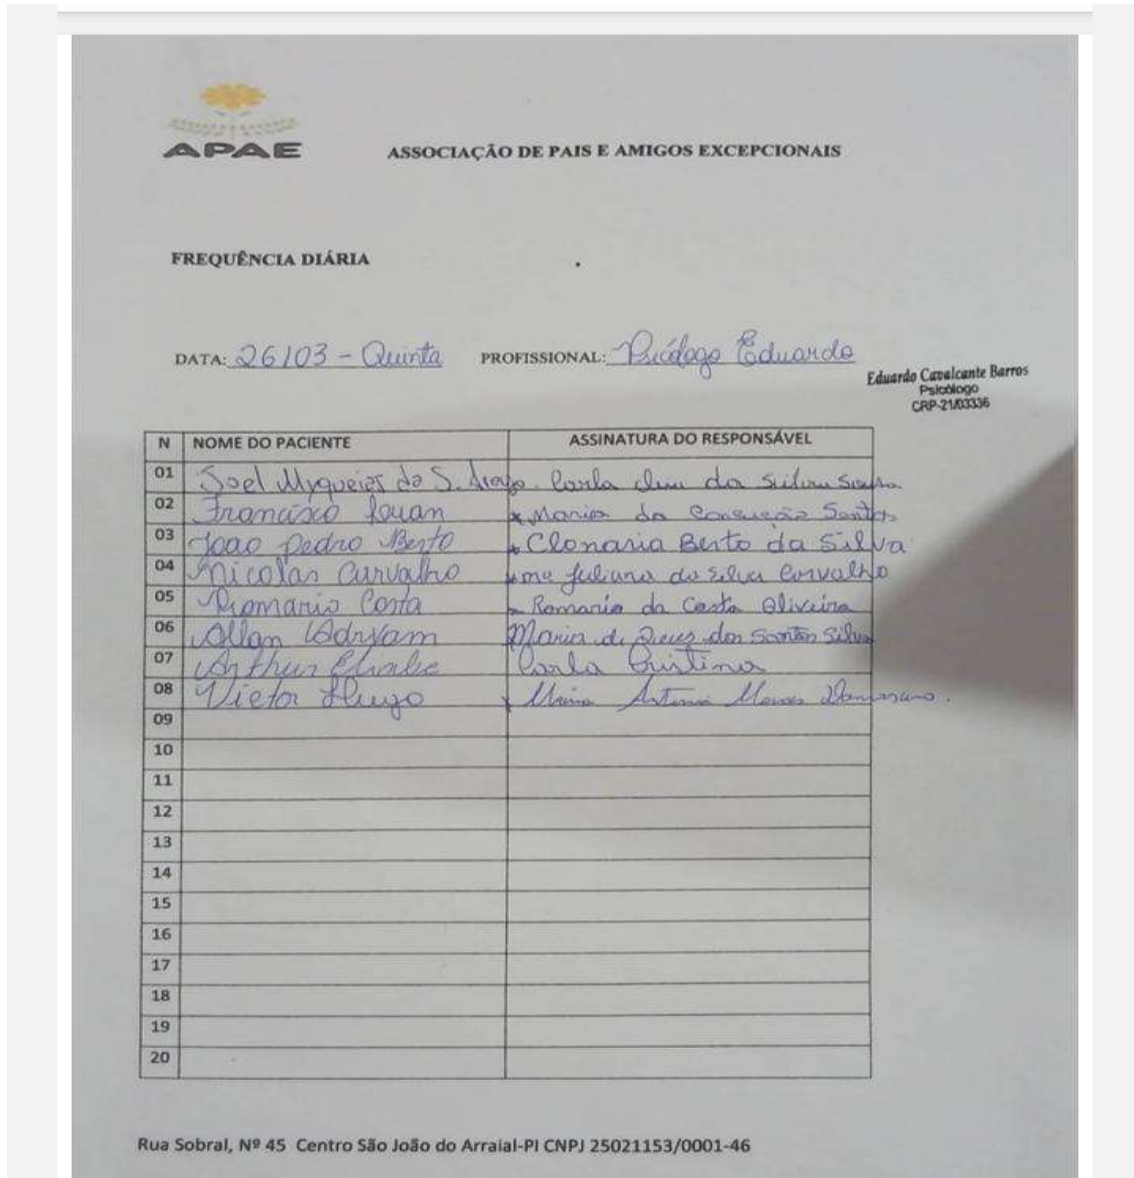 APAE
ASSOCIAÇÃO DE PAIS E AMIGOS EXCEPCIONAIS
FREQUÊNCIA DIÁRIA
DATA: 26/03 - Quinta PROFISSIONAL: Psicólogo Eduardo
Eduardo Cavalcante Barros
Psicólogo
CRP-21/03336
N NOME DO PACIENTE ASSINATURA DO RESPONSÁVEL
01 Joel da S. Carla da
02 Francisco Maria da Conceição Santos
03 João Pedro Berto Clonaria Berto da Silva
04 Nicolas Carvalho Juliana da Silva Carvalho
05 Romario Costa Romario da Costa Oliveira
06 Allan Adryam Maria de Deus dos Santos Silva
07 Arthur Carla Cristina
08 Victor Hugo
09
10
11
12
13
14
15
16
17
18
19
20
Rua Sobral, Nº 45 Centro São João do Arraial-PI CNPJ 25021153/0001-46